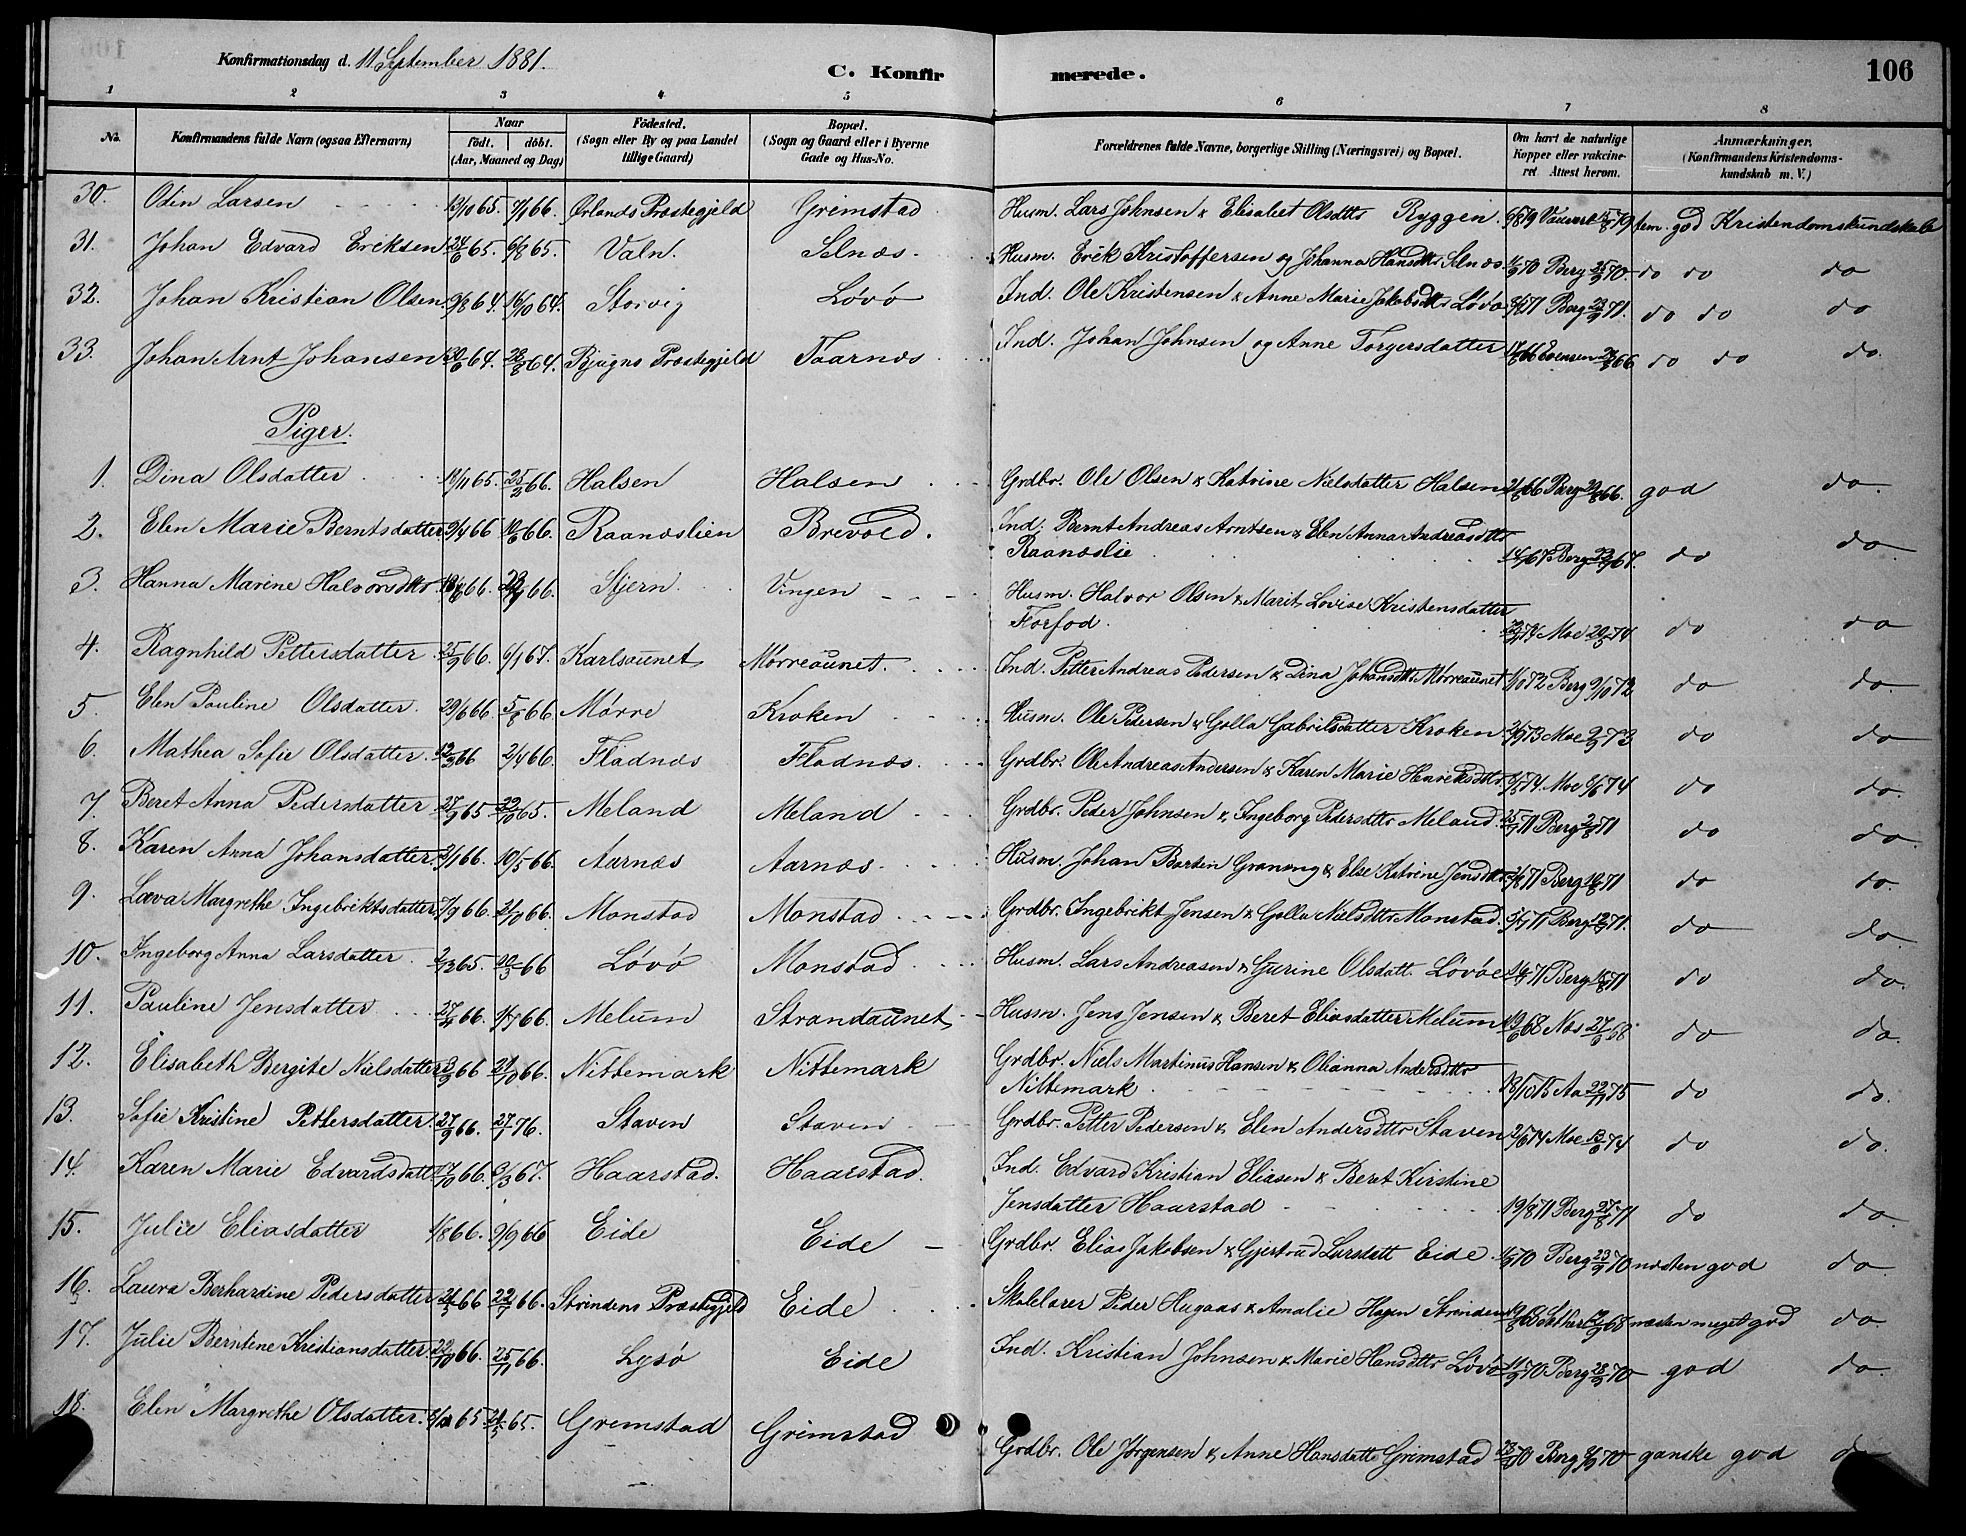 Konfirmationsdag d. 11 September 1881.
C. Konfir merede. 106
1 2 3 4 5 6 7 8
No. Konfirmandens fulde Navn (ogsaa Efternavn) Naar født. døbt. (Aar, Maaned og Dag) Fødested. (Sogn eller By og paa Landet tillige Gaard) Bopæl. (Sogn og Gaard eller i Byerne Gade og Hus-No. Forældrenes fulde Navne, borgerlige Stilling (Næringsvei) og Bopæl. Om havt de naturlige Kopper eller vakcineret Attest herom. Anmærkninger. (Konfirmandens Kristendomskundskab m. V.)
30. Odin Larsen 13/10 65. 7/1 66. Ørlands Præstegjeld Grimstad Husm. Lars Johnsen & Elisabet Olsdttr Ryggen. tem. god Kristendomskundskab
31. Johan Edvard Eriksen 24/6 65. 6/8 65. Valn. Selnæs. Husm. Erik Kristoffersen og Johanna Hansdttr Selnæs 70 Berg 25/9 70. do do do
32. Johan Kristian Olsen 9/8 64. 16/10 64. Storvig Løvø Ind. Ole Kristensen & Anne Marie Jakobsdttr Løvø 71 Berg 23/9 71. do do do
33. Johan Arnt Johansen 30/6 64. 28/8 64. Bjugns Præstegjeld Taarnæs Ind. Johan Johnsen og Anne Torgersdatter 66 Evensen 66 do do do.
Piger.
1. Dina Olsdatter 65. 25/2 66. Halsen Halsen Grdbr. Ole Olsen & Katrine Nielsdatter Halsen 66 Berg 66. god do.
2. Elen Marie Berntsdatter 9/4 66 10/6 66. Raanæslien Brevold. Ind. Bernt Andreas Arntsen & Elen Anna Andreasdttr
Raanæslie 67 Berg 67. do do
3. Hanna Marene Halvorsdttr 66. 66. Stjern Vingen Husm. Halvor Olsen & Marit Lovise Kristensdatter
Forfod. 74 Moe 74 do do
4. Ragnhild Pettersdatter 25/9 66. 6/1 67. Karlsaunet Mørreaunet. Ind. Petter Andreas Pedersen & Dina Johansdttr Mørreaunet 72 Berg 9/10 72 do do.
5. Elen Pauline Olsdatter. 29/6 66. 5/8 66 Mørre Kroken Husm. Ole Pedersen & Golla Gabrielsdatter Kroken 73 Moe 73 do do
6. Mathea Sofie Olsdatter. 66 2/4 66. Fladnæs Fladnæs. Grdbr. Ole Andreas Andersen & Karen Marie Henriksdttr 74 Moe 74 do do.
7. Beret Anna Pedersdatter 27/9 65 22/10 65. Meland Meland Grdbr. Peder Johnsen & Ingeborg Pedersdttr Meland. 71 Berg 71 do do.
8. Karen Anna Johansdatter. 66. 10/5 66. Aarnæs Aarnæs. Husm. Johan Bortin Granong & Else Katrine Jensdttr 71 Berg 71 do do.
9. Lava Margrethe Ingebriktsdatter 7/9 66. 21/10 66. Monstad Monstad Grdbr. Ingebrikt Jensen & Golla Nielsdttr Monstad. 71 Berg 71. do do.
10. Ingeborg Anna Larsdatter 65. 66 Løvø Monstad Husm. Lars Andreasen & Gurine Olsdatt. Løvøe 71 Berg 71 do do.
11. Pauline Jensdatter 66. 66. Melum Strandaunet Husm. Jens Jensen & Beret Eliasdatter Melum 68 Næs 68 do do.
12. Elisabeth Bergite Nielsdatter 66 21/10 66. Nittemark Nittemark Grdbr. Niels Martinus Hansen & Olianna Andersdttr
Nittemark 75 Aa 22/11 75 do do.
13. Sofie Kristine Pettersdatter. 27/9 66. 27/1 76. Staven Staven Grdbr. Petter Pedersen & Elen Andersdttr Staven 74 Moe 74 do do.
14. Karen Marie Edvardsdatt 66. 3/3 67. Haarstad. Haarstad. Ind. Edvard Kristian Eliasen & Beret Kirstine
Jensdatter Haarstad 19/8 71 Berg 27/8 71 do do.
15. Julie Eliasdatter 1/8 66. 9/9 66 Eide Eide Grdbr. Elias Jakobsen & Gjertrud Larsdatt Eide 70 Berg 23/9 70 næsten god do.
16. Laura Berhardine Pedersdatter 66 22/7 66. Strindens Præstegjeld Eide Skolelærer Peder Hugaas & Amalie Hagen Strinden 68 næsten meget god do.
17. Julie Berntene Kristiansdatter 22/10 66. 25/11 66. Lysø Eide Ind. Kristian Johnsen & Marie Hansdttr Løvø 11/9 70 Berg 70 god do.
18. Elen Margrethe Olsdatter. 65 65. Gremstad Grimstad Grdbr. Ole Jørgensen & Anne Hansdatt Grimstad 70 Berg 70 ganske god do